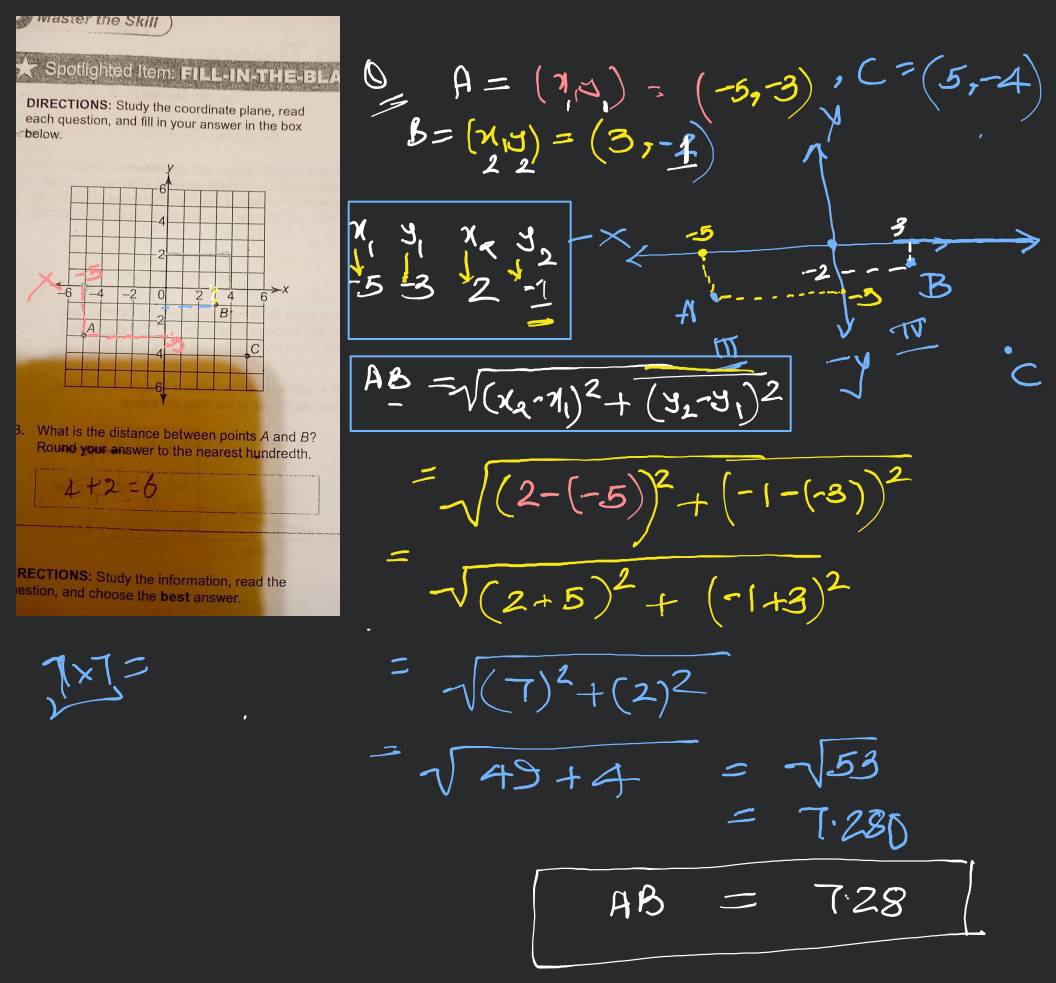 Master the Skill
★ Spotlighted Item: FILL-IN-THE-BLA
DIRECTIONS: Study the coordinate plane, read
each question, and fill in your answer in the box
below.
y
6
4
2
X -5
-6 -4 -2 0 2 4 6 x
B
-2
A
C
-4
-6
3. What is the distance between points A and B?
Round your answer to the nearest hundredth.
4+2=6
RECTIONS: Study the information, read the
estion, and choose the best answer.
7×7=
Q A = (x₁,y₁) = (-5,-3), C = (5,-4)
B = (x₂,y₂) = (3,-1)
x₁ y₁ x₂ y₂
-5 -3 2 -1
y
-X -5 3
-2 B
A -3
III IV
-y C
AB = √(x₂-x₁)² + (y₂-y₁)²
= √(2-(-5))² + (-1-(-3))²
= √(2+5)² + (-1+3)²
= √(7)² + (2)²
= √49+4 = √53
= 7.280
AB = 7.28